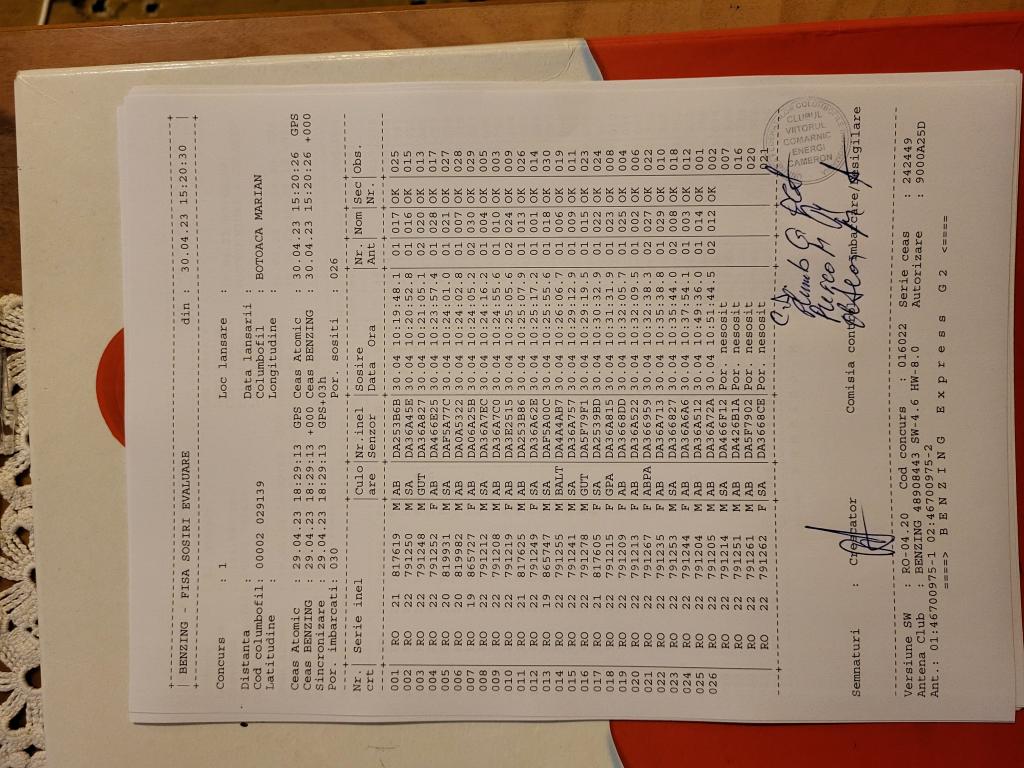 BENZING - FISA SOSIRI EVALUARE din : 30.04.23 15:20:30
Concurs : 1 Loc lansare :
Distanta : Data lansarii :
Cod columbofil: 00002 029139 Columbofil : BOTOACA MARIAN
Latitudine : Longitudine :
Ceas Atomic : 29.04.23 18:29:13 GPS Ceas Atomic : 30.04.23 15:20:26 GPS
Ceas BENZING : 29.04.23 18:29:13 +000 Ceas BENZING : 30.04.23 15:20:26 +000
Sincronizare : 29.04.23 18:29:13 GPS+03h
Por. imbarcati: 030 Por. sositi : 026
Nr. | Serie inel | Culo | Nr.inel | Sosire | Nr. | Nom | Sec | Obs.
crt | | are | Senzor | Data Ora | Ant | | Nr.
001 | RO 21 817619 M | AB | DA253B6B | 30.04 10:19:48.1 | 01 | 017 | OK | 025
002 | RO 22 791250 M | SA | DA36A45E | 30.04 10:20:52.8 | 01 | 016 | OK | 015
003 | RO 22 791248 M | GUT | DA36A827 | 30.04 10:21:05.1 | 02 | OK | 013
004 | RO 22 791252 F | AB | DA466E25 | 30.04 10:23:57.4 | 02 | 028 | OK | 017
005 | RO 20 819931 M | SA | DAF5A77C | 30.04 10:24:01.6 | 01 | 021 | OK | 027
006 | RO 20 819982 M | AB | DA0A5322 | 30.04 10:24:02.8 | 01 | 007 | OK | 028
007 | RO 19 865727 F | AB | DA06A25B | 30.04 10:24:05.2 | 02 | 030 | OK | 029
008 | RO 22 791212 M | SA | DA36A7EC | 30.04 10:24:16.2 | 01 | 004 | OK | 005
009 | RO 22 791208 M | AB | DA36A7C0 | 30.04 10:24:55.6 | 01 | 010 | OK | 003
010 | RO 22 791219 F | AB | DA3E2515 | 30.04 10:25:05.6 | 02 | 024 | OK | 009
011 | RO 21 817625 M | AB | DA253B86 | 30.04 10:25:07.9 | 01 | 013 | OK | 026
012 | RO 22 791249 M | SA | DA36A62E | 30.04 10:25:17.2 | 01 | 001 | OK | 014
013 | RO 19 865747 F | SA | DAF5A00C | 30.04 10:25:55.6 | 01 | 018 | OK | 030
014 | RO 22 791255 M | BALT | DA4A4AB7 | 30.04 10:26:06.7 | 01 | 006 | OK | 019
015 | RO 22 791241 M | SA | DA36A757 | 30.04 10:29:12.9 | 01 | 009 | OK | 011
016 | RO 22 791278 M | GUT | DA5F79F1 | 30.04 10:29:19.5 | 01 | 015 | OK | 023
017 | RO 21 817605 F | AB | DA2533BD | 30.04 10:30:32.9 | 01 | 022 | OK | 024
018 | RO 22 791215 F | GPA | DA36A815 | 30.04 10:31:31.9 | 01 | 023 | OK | 008
019 | RO 22 791209 F | AB | DA3668DD | 30.04 10:32:05.7 | 01 | 025 | OK | 004
020 | RO 22 791213 F | AB | DA36A522 | 30.04 10:32:09.5 | 01 | 002 | OK | 006
021 | RO 22 791267 F | ABPA | DA366959 | 30.04 10:32:38.3 | 02 | 027 | OK | 022
022 | RO 22 791235 F | AB | DA36A713 | 30.04 10:35:38.8 | 01 | 029 | OK | 010
023 | RO 22 791253 M | SA | DA366827 | 30.04 10:35:44.0 | 02 | OK | 018
024 | RO 22 791244 F | AB | DA36A6A6 | 30.04 10:37:54.1 | 01 | 003 | OK | 012
025 | RO 22 791204 M | AB | DA36A512 | 30.04 10:49:36.0 | 01 | 014 | OK | 001
026 | RO 22 791205 M | AB | DA36A72A | 30.04 10:51:44.5 | 02 | 012 | OK | 002
RO 22 791214 M | SA | DA466F12 | Por. nesosit | 007
RO 22 791251 M | AB | DA426B1A | Por. nesosit | 016
RO 22 791261 M | AB | DA5F7902 | Por. nesosit | 020
RO 22 791262 F | SA | DA3668CE | Por. nesosit | 021
CLUBUL
VIITORUL
COMARNIC
ENERGI
CAMERON
Semnaturi : Crescator Comisia
Versiune SW : RO-04.20 Cod concurs : 016022 Serie ceas : 242449
Antena Club : BENZING 48908443 SW-4.6 HW-8.0 Autorizare : 9000A25D
Ant.: 01:46700975-1 02:46700975-2
====> B E N Z I N G E x p r e s s G 2 <====